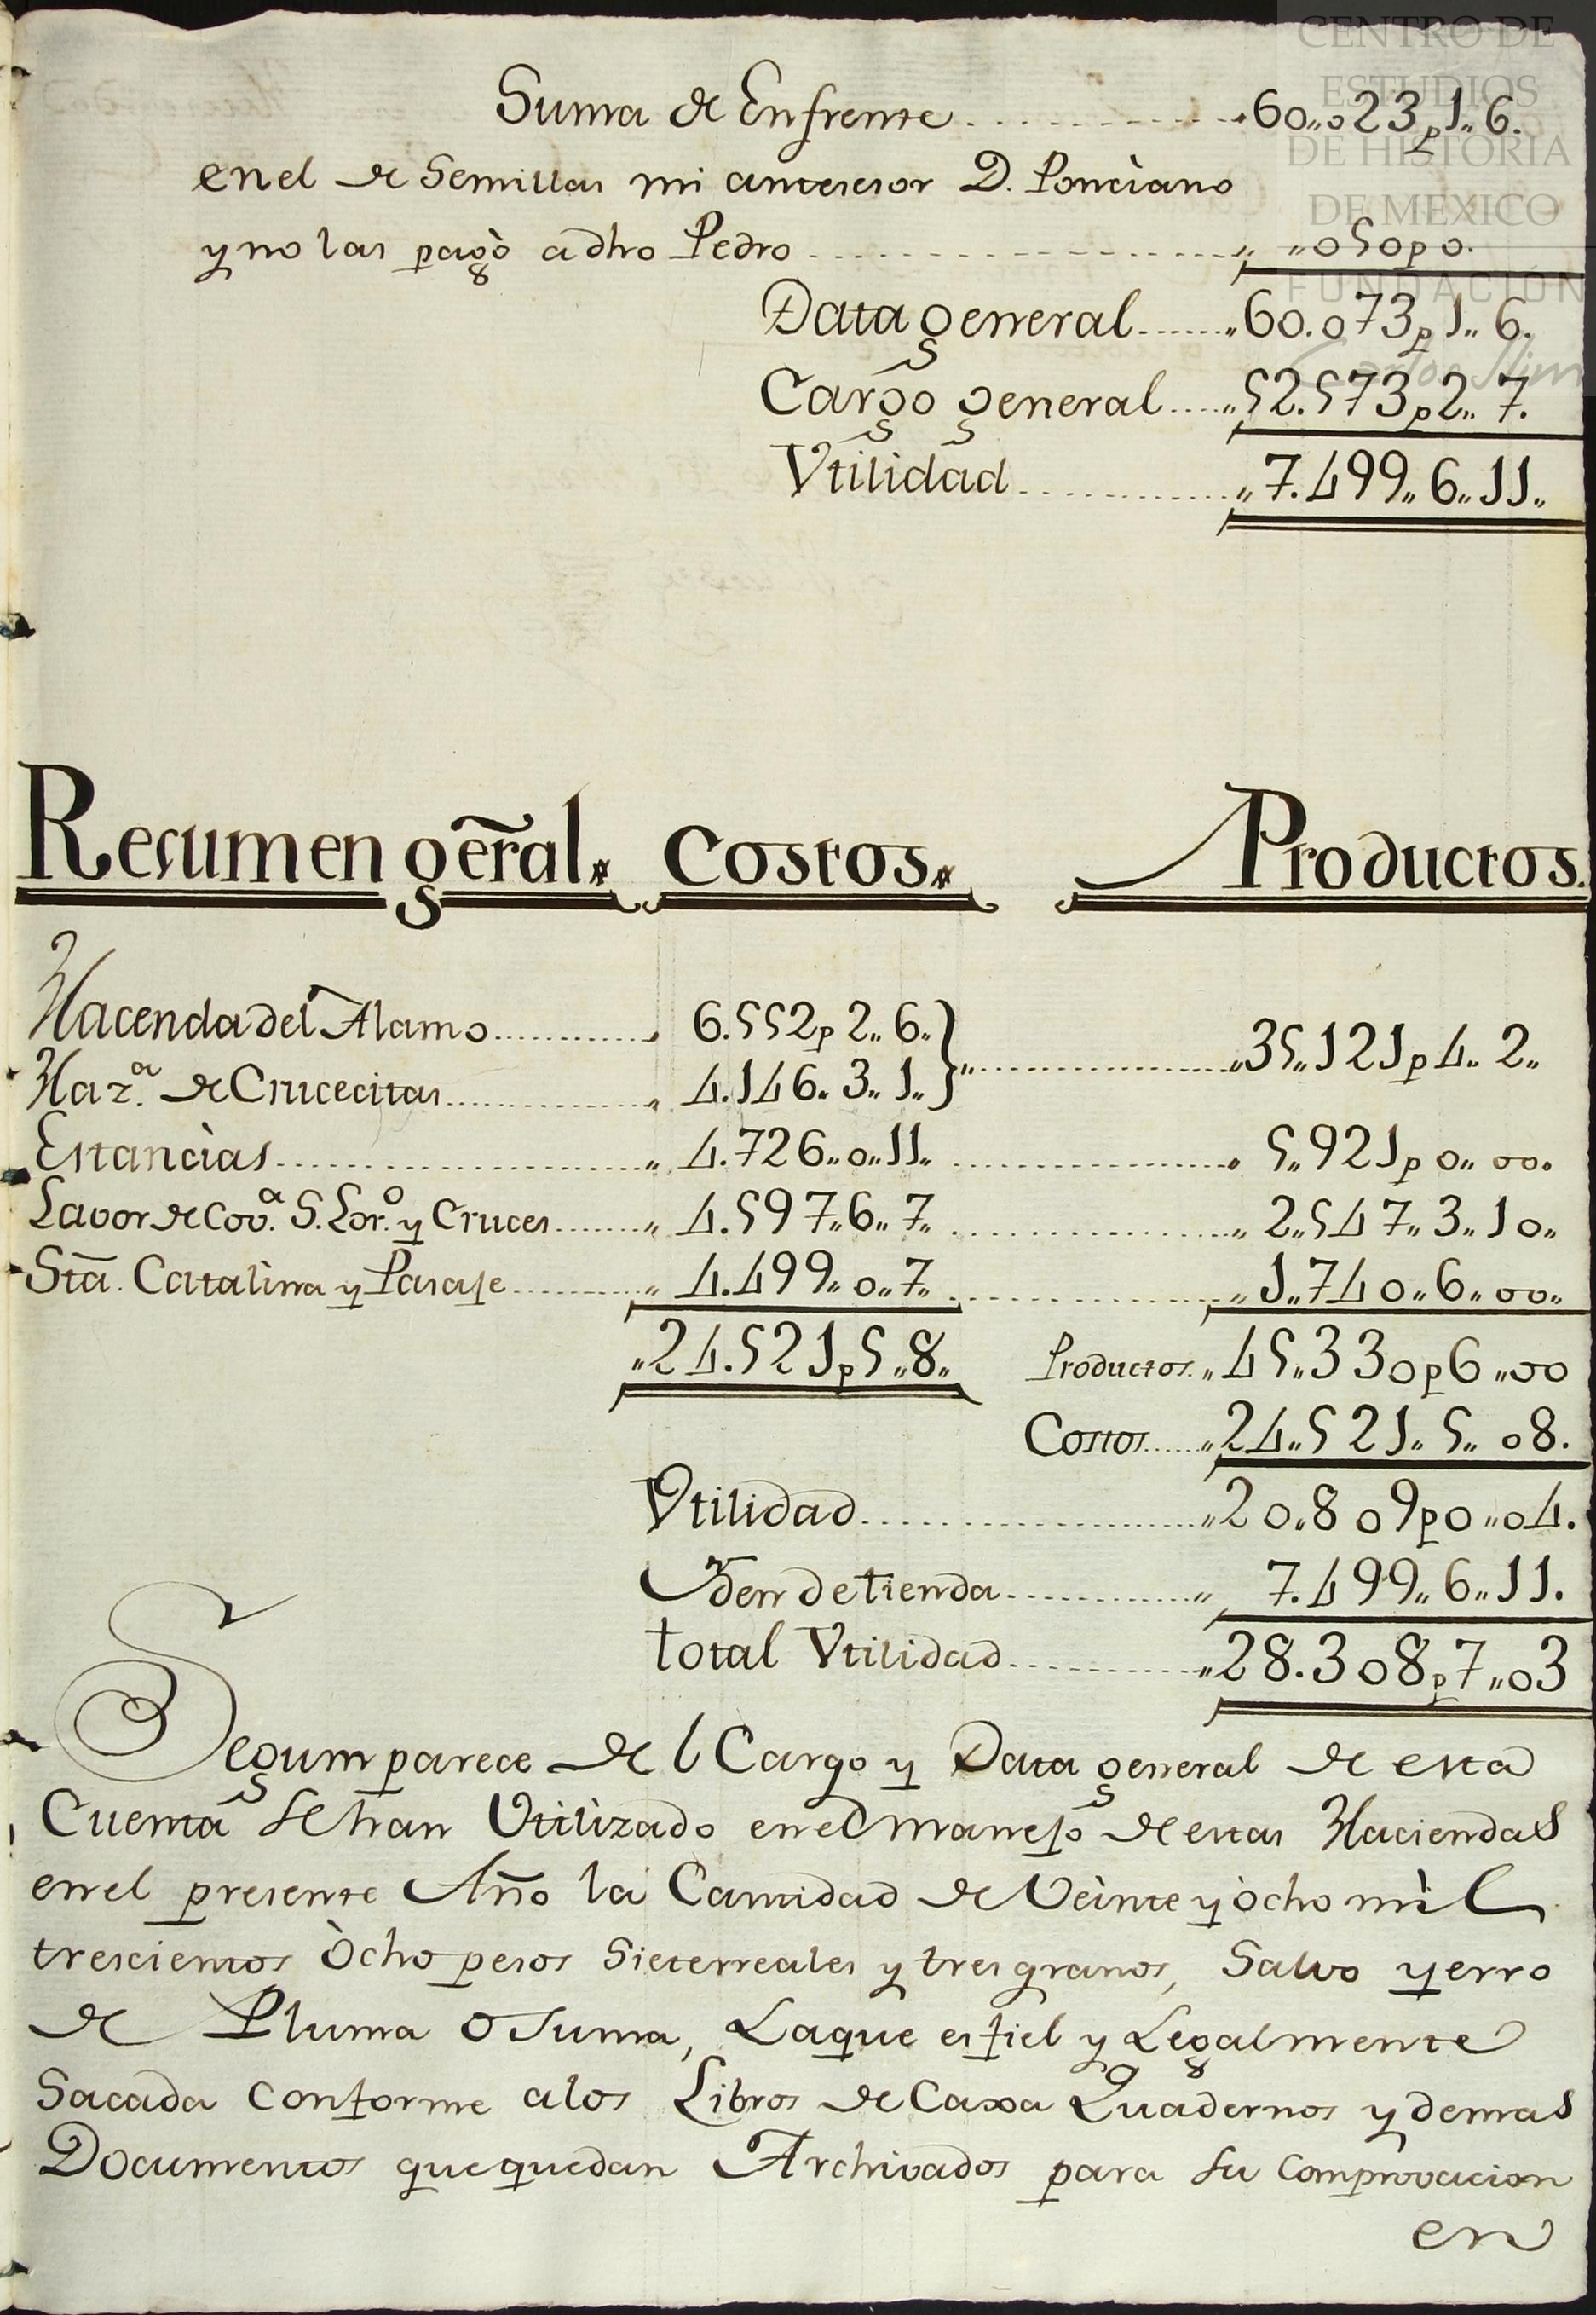 CENTRO DE
ESTUDIOS
DE HISTORIA
DE MEXICO
FUNDACIÓN
Carlos Slim
Suma de Enfrente 60„023p1„6.
en el de Semillas mi antecesor D. Ponciano
y no las pagò a dho Pedro „050p0.
Data general „60.073p1„6.
Cargo general „52.573p2„7.
Vtilidad „7.499„6„11„
Resumen gēral. Costos. Productos.
Hacenda del Alamo 6.552p2„6„
Haz.ª de Crucecitas 4.146„3„1„ } „35„121p4„2„
Estancias „4.726„0„11„ 5„921p0„00„
Lavor de Cov.ª S. Lor.º y Cruces „4.597„6„7„ „2„547„3„10„
Stā. Catalina y Pasaje „4.499„0„7„ „1„740„6„00„
„24.521p5„8„ Productos „45„330p6„00
Costos „24„521„5„08.
Vtilidad „20„809p0„04.
Yden de tienda „7.499„6„11.
total Vtilidad „28.308p7„03
Segum parece del Cargo y Data general de esta
Cuenta se han Utilizado en el manejo de estas Haciendas
en el presente Año la Cantidad de Veinte y òcho mil
trescientos òcho pesos Siete rreales y tres granos, Salvo yerro
de Pluma o Suma, La que es fiel y Legalmente
Sacada Conforme a los Libros de Caxa Quadernos y demas
Documentos que quedan Archivados para su Comprovacion
en